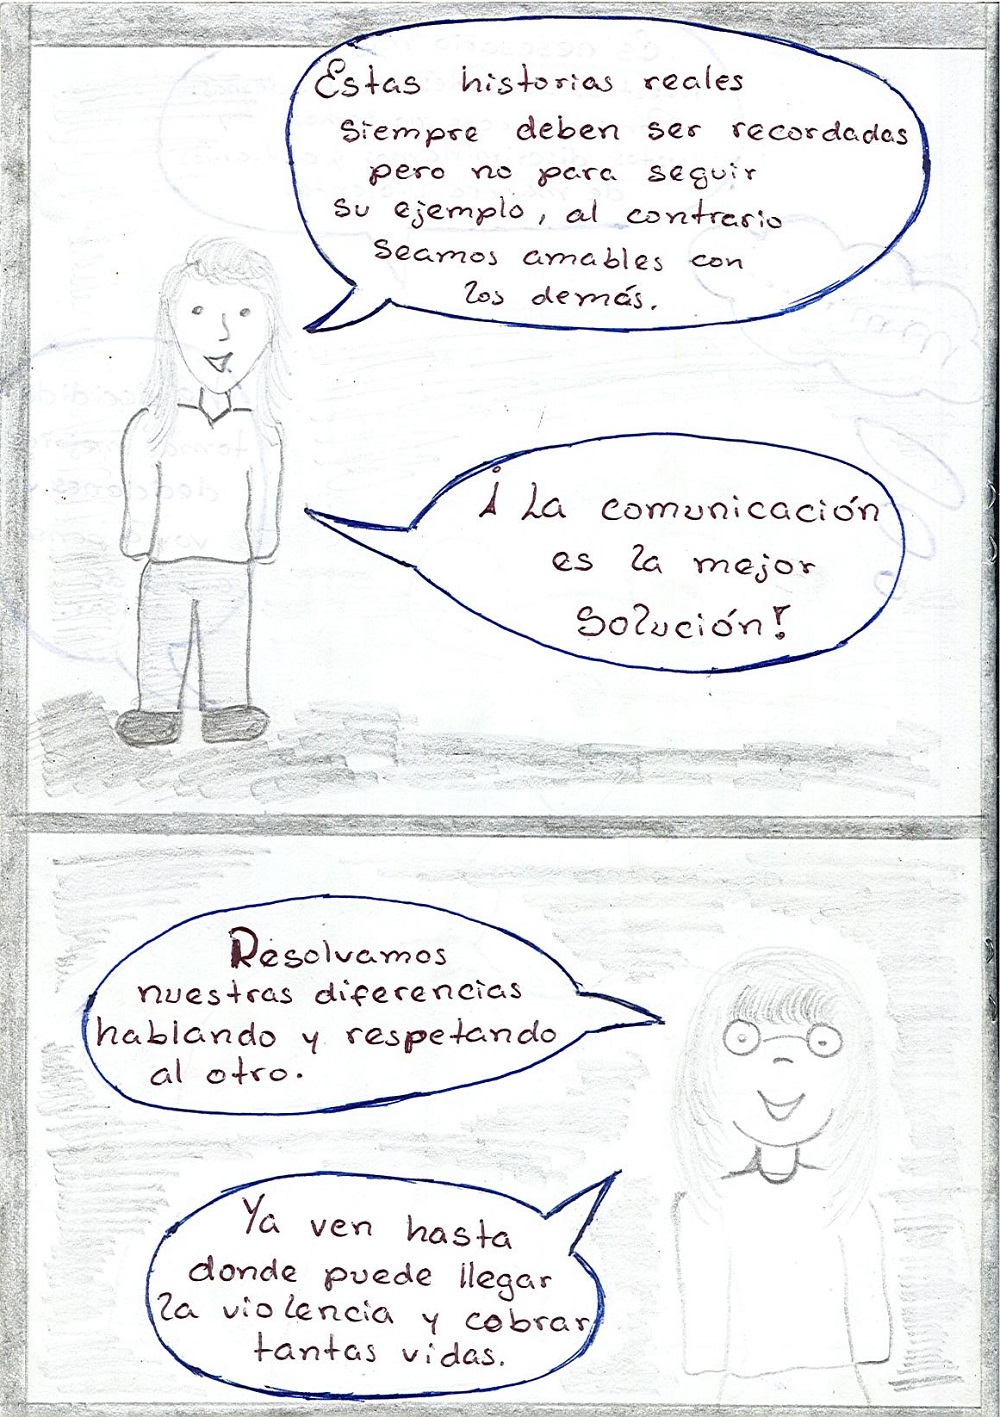 Estas historias reales
siempre deben ser recordadas
pero no para seguir
su ejemplo, al contrario
seamos amables con
los demás.
¡La comunicación
es la mejor
solución!
Resolvamos
nuestras diferencias
hablando y respetando
al otro.
Ya ven hasta
donde puede llegar
la violencia y cobrar
tantas vidas.